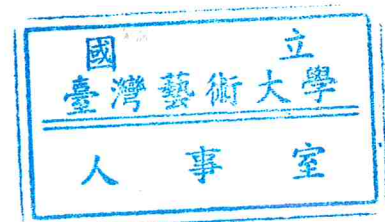 國立
臺灣藝術大學
人事室